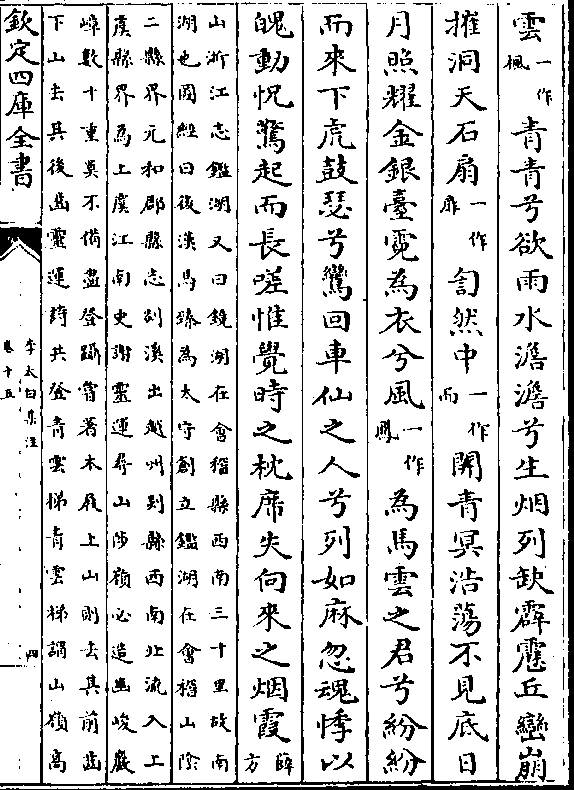 雲一作楓青青兮欲雨水澹澹兮生烟列缺霹靂丘巒崩
摧洞天石扇一作扉訇然中一作而開青冥浩蕩不見底日
月照耀金銀臺霓為衣兮風一作鳳為馬雲之君兮紛紛
而來下虎鼓瑟兮鸞回車仙之人兮列如麻忽魂悸以
魄動怳驚起而長嗟惟覺時之枕席失向來之烟霞薛方
山浙江志鑑湖又曰鏡湖在會稽縣西南三十里故南
湖也圖經曰後漢馬臻為太守創立鑑湖在會稽山隂
二縣界元和郡縣志剡溪出越州剡縣西南北流入上
虞縣界為上虞江南史謝靈運尋山陟嶺必造幽峻巖
嶂數十重莫不備盡登躡嘗著木屐上山則去其前齒
下山去其後齒靈運詩共登青雲梯青雲梯謂山嶺高
欽定四庫全書
李太白集注
卷十五
四